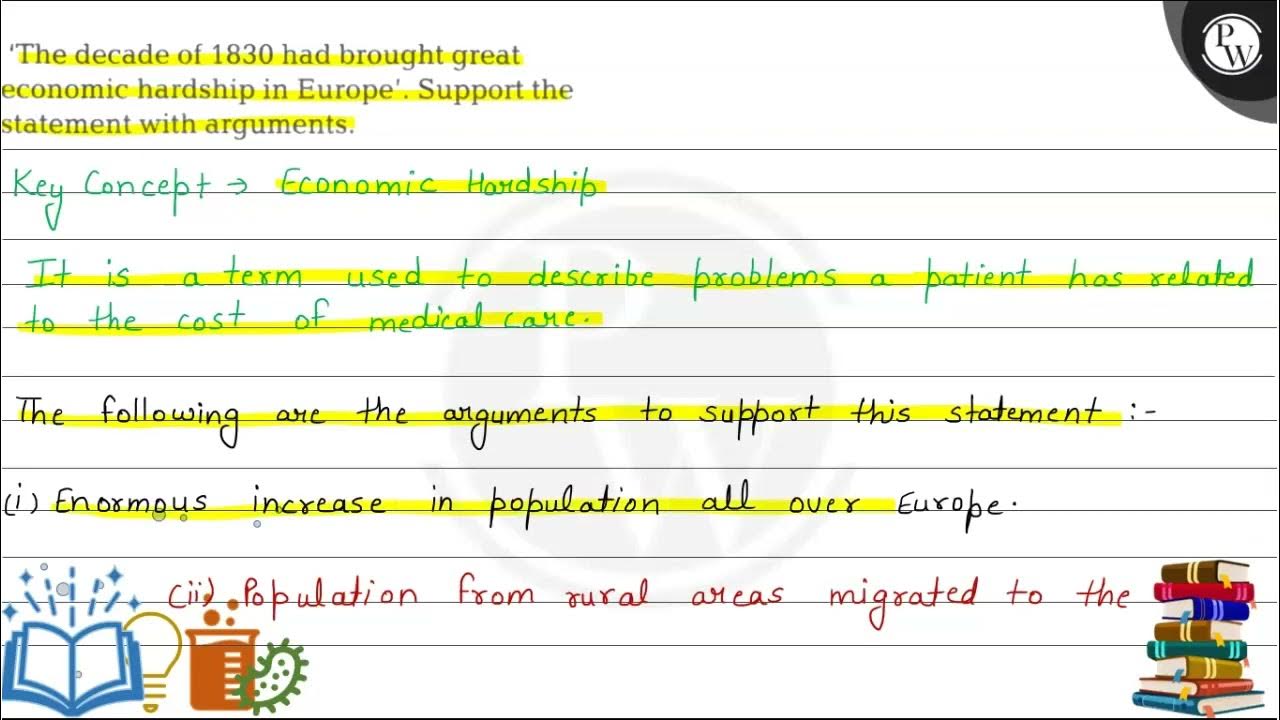 'The decade of 1830 had brought great
economic hardship in Europe'. Support the
statement with arguments.
PW
Key Concept → Economic Hardship
It is a term used to describe problems a patient has related
to the cost of medical care.
The following are the arguments to support this statement :-
(i) Enormous increase in population all over Europe.
(ii) Population from rural areas migrated to the